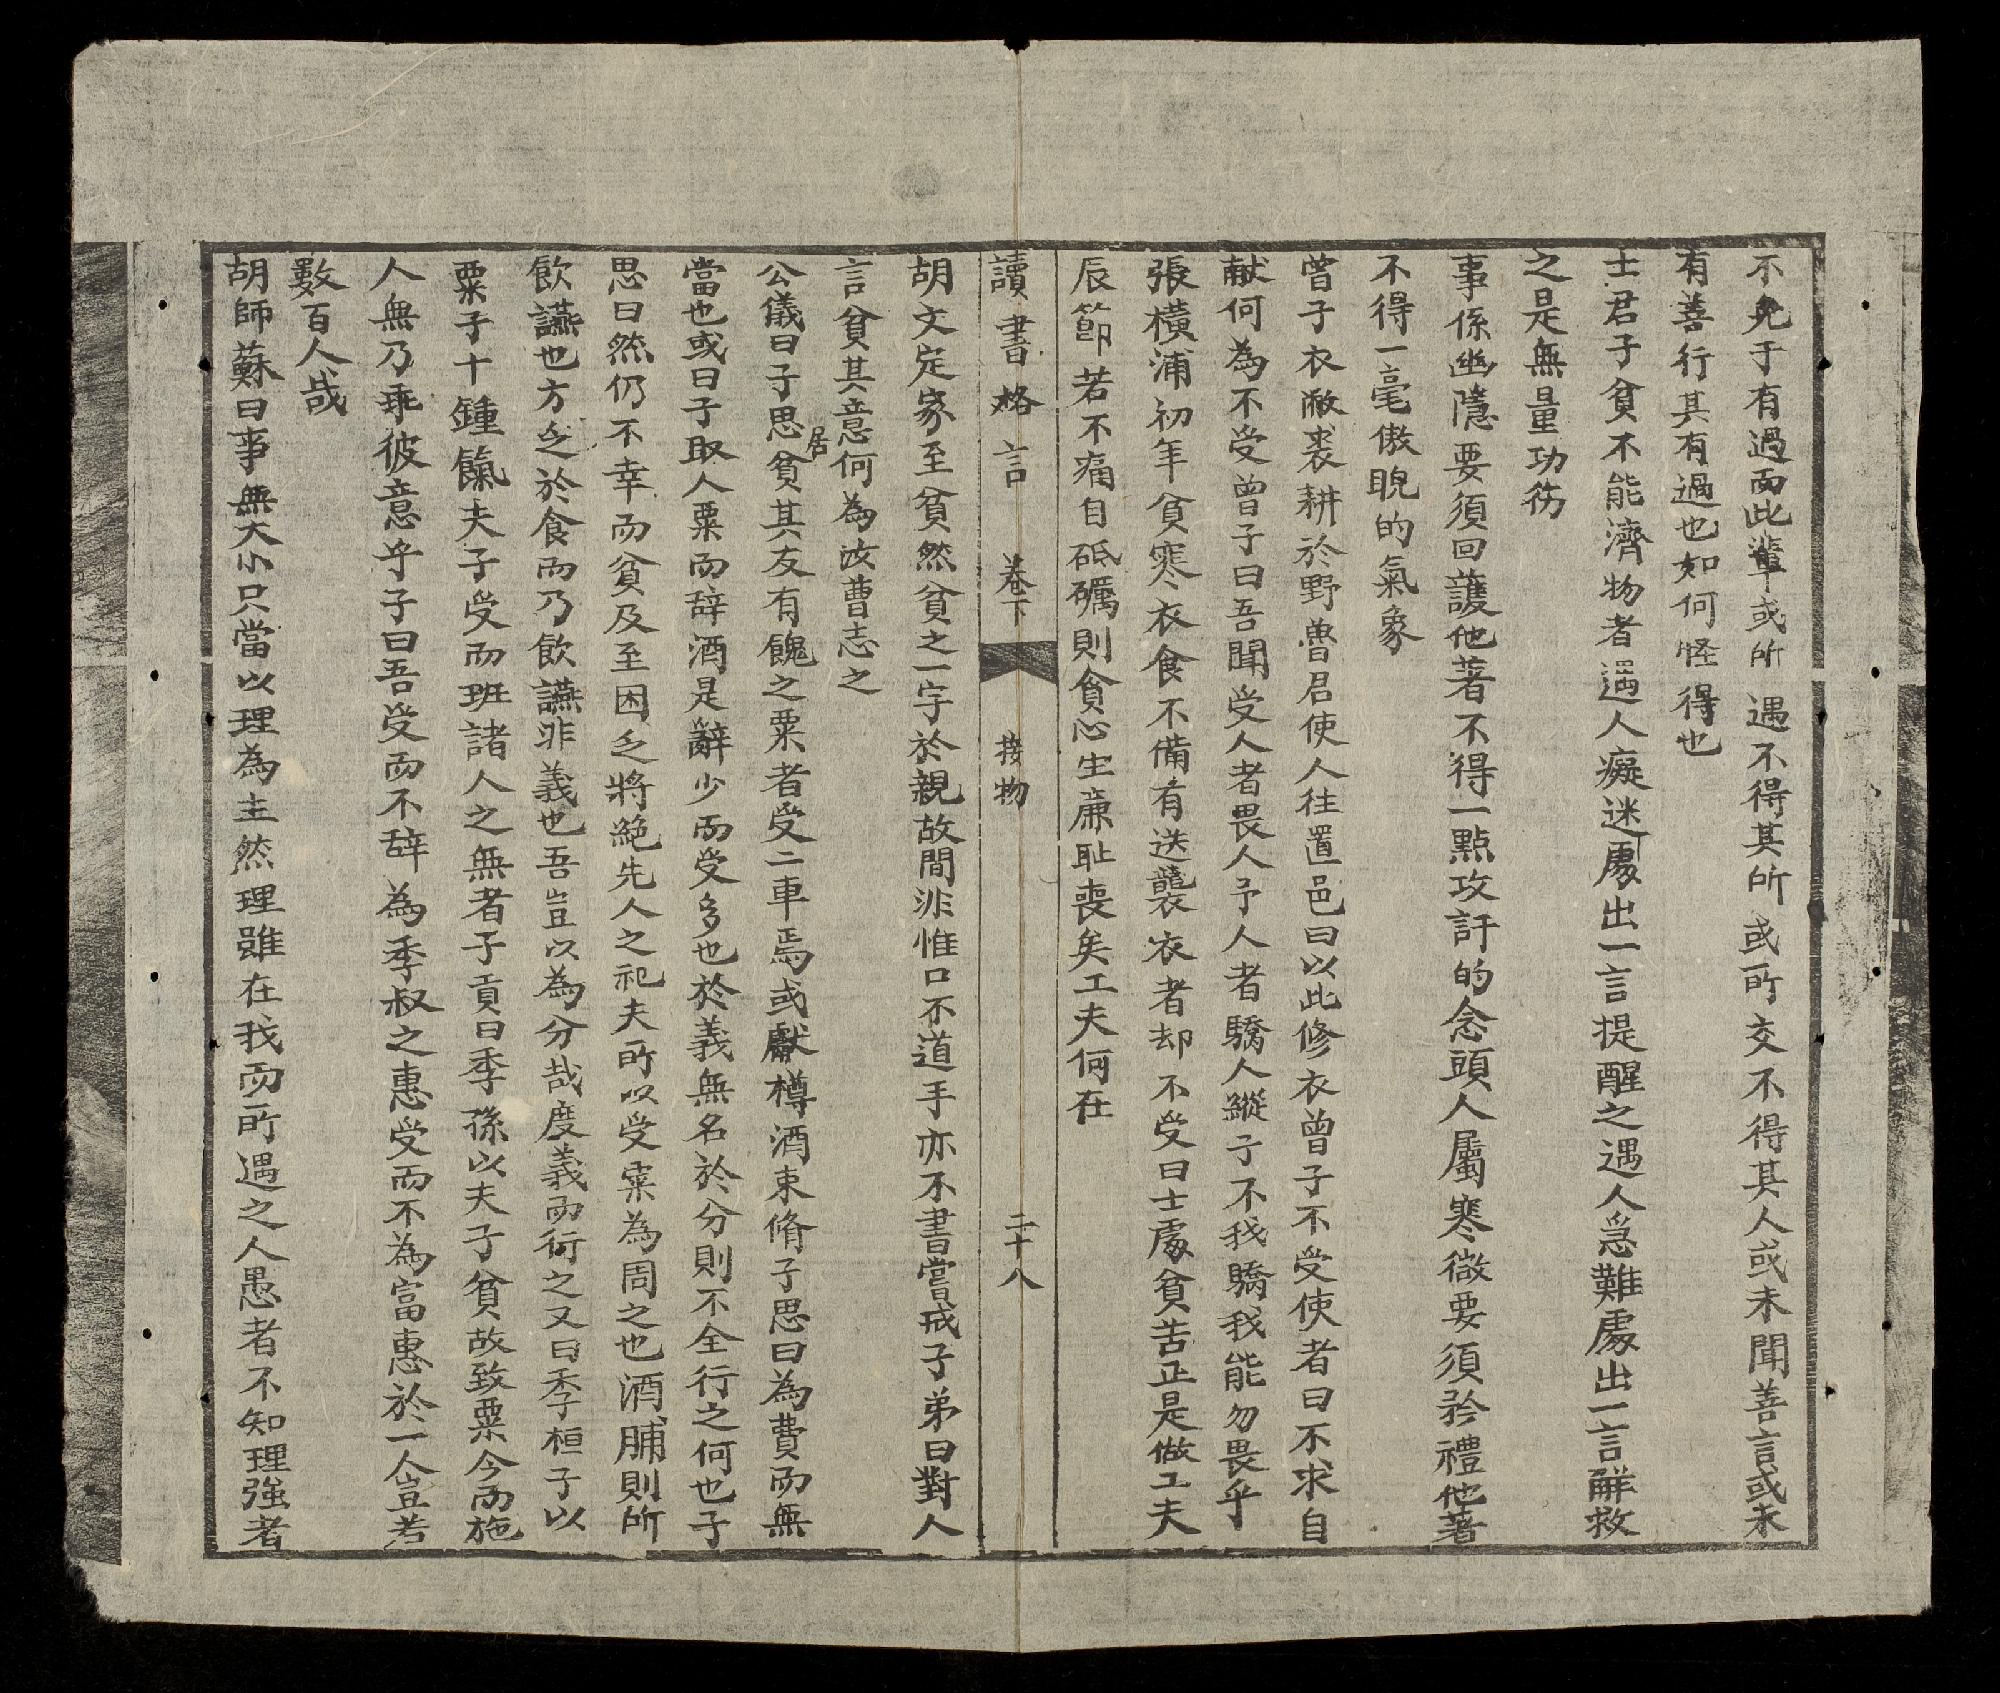 不免于有過而此輩或所遇不得其所或所交不得其人或未聞善言或未
有善行其有過也如何怪得也
士君子貧不能濟物者遇人癡迷處出一言提醒之遇人急難處出一言解救
之是無量功徳
事係幽隱要須回護他著不得一點攻訐的念頭人屬寒微要須矜禮他著
不得一毫傲睨的氣象
曾子衣敝裘耕於野魯君使人往置邑曰以此修衣曾子不受使者曰不求自
献何為不受曾子曰吾聞受人者畏人予人者驕人縱子不我驕我能勿畏乎
張横浦初年貧寒衣食不備有送襲衣者却不受曰士處貧苦正是做工夫
辰節若不痛自砥礪則貪心生廉耻喪矣工夫何在
讀書格言 卷下 接物 二十八
胡文定家至貧然貧之一字於親故間非惟口不道手亦不書嘗戒子弟曰對人
言貧其意何為汝曹志之
公儀曰子思居貧其友有餽之粟者受二車焉或獻樽酒束脩子思曰為費而無
當也或曰子取人粟而辞酒是辭少而受多也於義無名於分則不全行之何也子
思曰然仍不幸而貧及至困乏將絶先人之祀夫所以受粟為周之也酒脯則所
飲讌也方乏於食而乃飲讌非義也吾豈以為分哉度義而行之又曰季桓子以
粟子十鍾餼夫子受而班諸人之無者子貢曰季孫以夫子貧故致粟今而施
人無乃乖彼意乎子曰吾受而不辞為季叔之惠受而不為富惠於一人豈若
數百人哉
胡師蘇曰事無大小只當以理為主然理雖在我而所遇之人愚者不知理強者